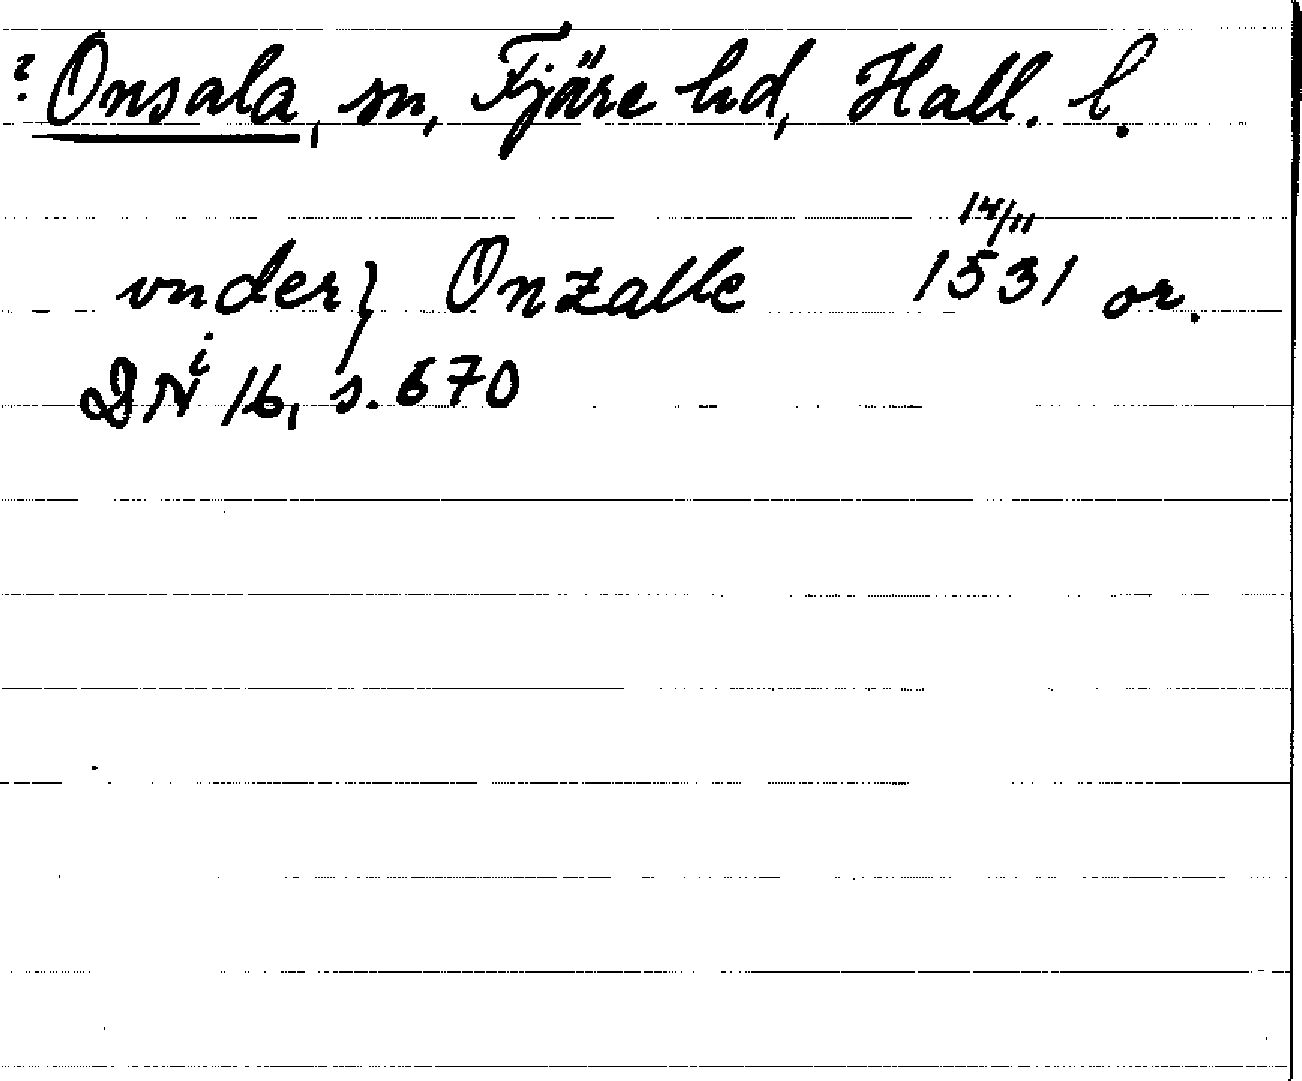 ? Onsala, sn, Fjäre hd, Hall. l.
14/11
vnder} Onzalle 1531 or.
i
DN 16, s. 670